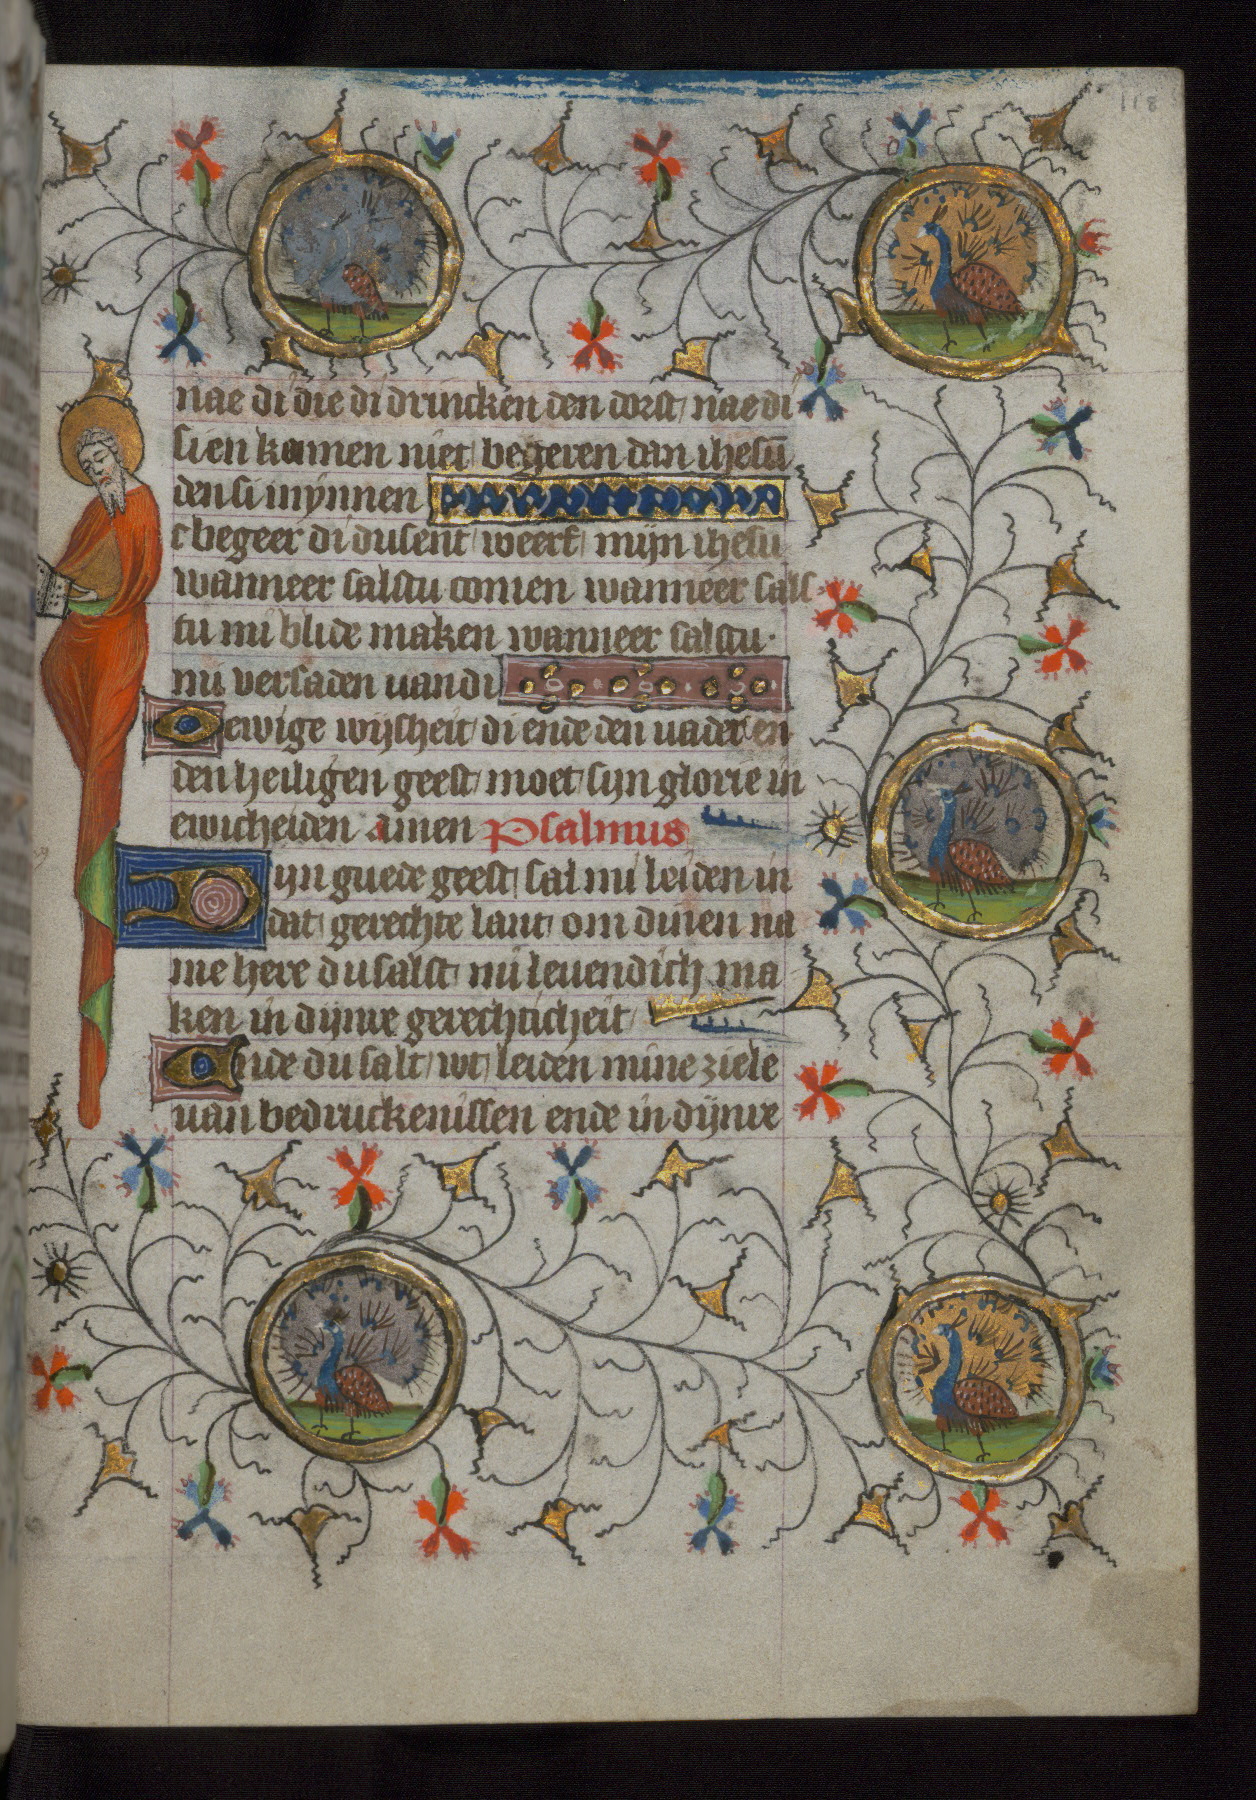 118
nae di die di drincken den dorst nae di
si en konnen niet begeren dan ihesū
den si mynnen
c begeer di dusent weerf mijn ihesu
wanneer salstu comen wanneer sals
tu mi blide maken wanneer salstu·
mi versaden uan di
O ewige wijsheit di ende den uader en
den heiligen geest moet sijn glorie in
ewicheiden amen Psalmus
Dijn guede geest sal mi leiden in
dat gerechte lant om dinen na
me here du salst mi leuendich ma
ken in dijnre gerechticheit
Ende du salt wt leiden mine ziele
uan bedruckenissen ende in dijnre